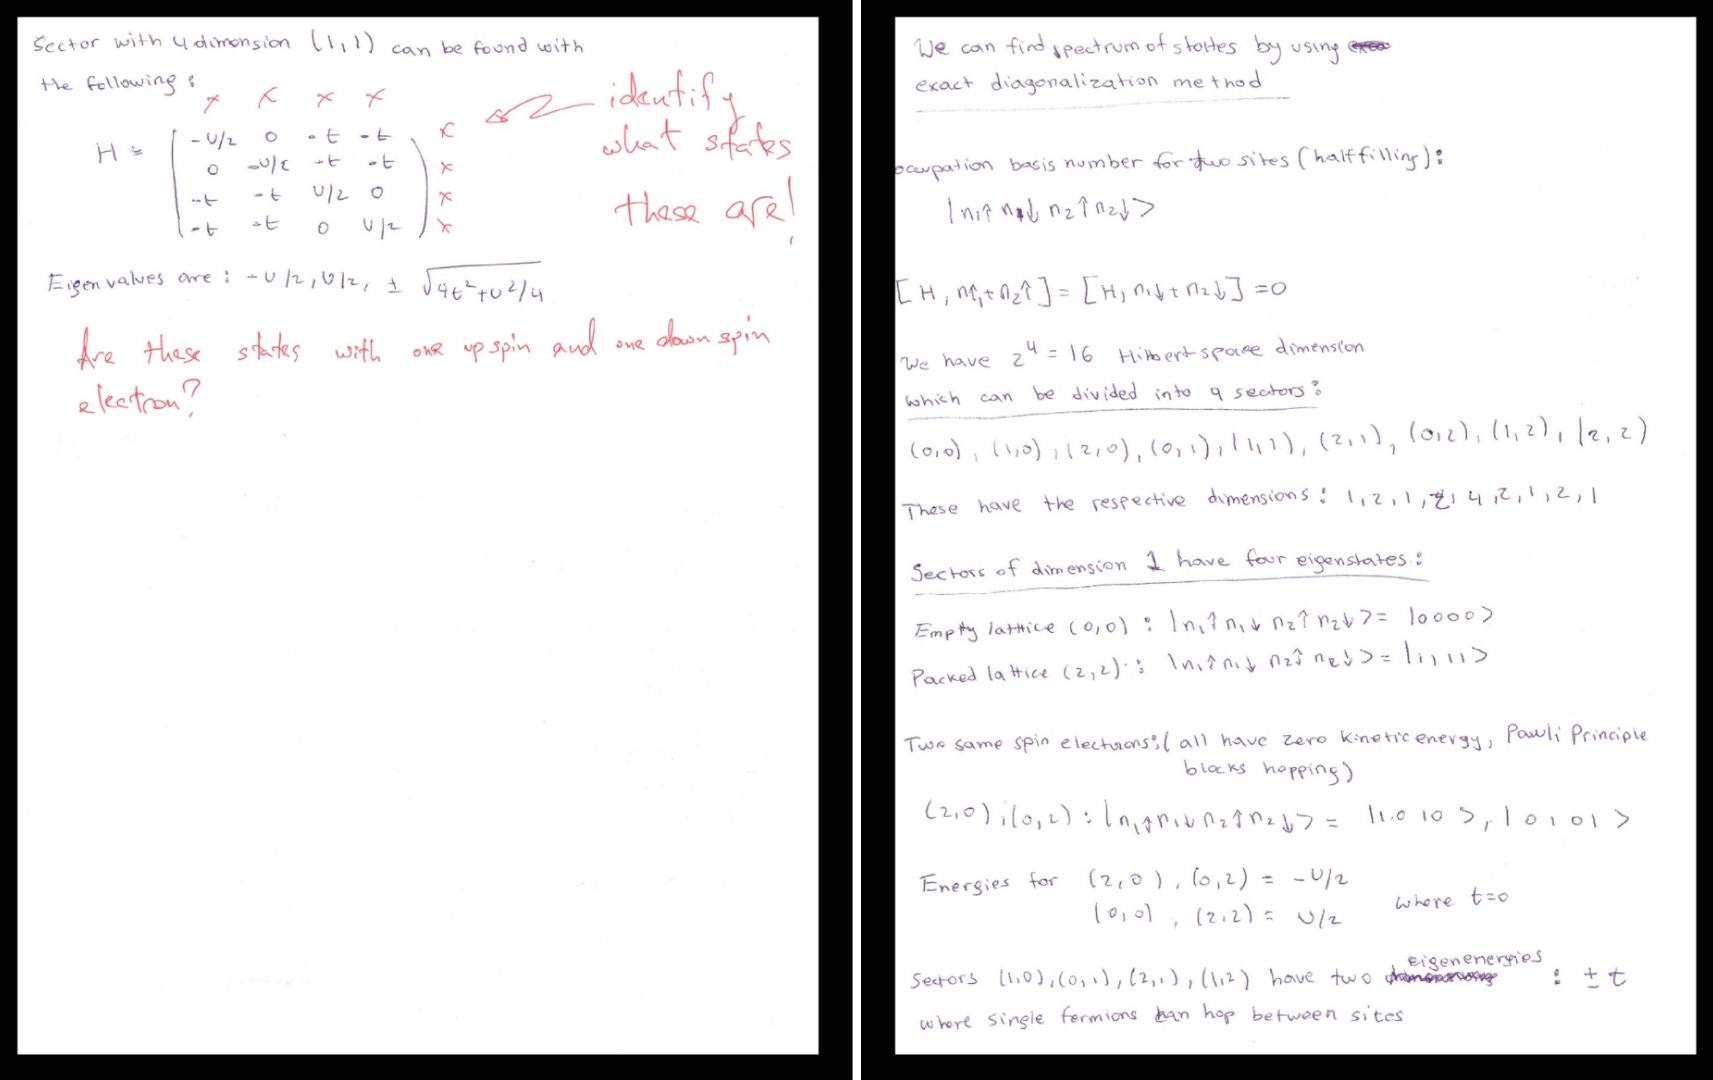 Sector with 4 dimension (1,1) can be found with
the following:
x x x x
H = ( -U/2 0 -t -t ) x
( 0 -U/2 -t -t ) x
( -t -t U/2 0 ) x
( -t -t 0 U/2 ) x
identify
what states
these are!
Eigenvalues are: -U/2, U/2, ± √4t²+U²/4
Are these states with one up spin and one down spin
electron?
We can find spectrum of states by using
exact diagonalization method
occupation basis number for two sites (half filling):
|n₁↑ n₁↓ n₂↑ n₂↓>
[H, n₁↑+n₂↑] = [H, n₁↓+n₂↓] = 0
We have 2⁴ = 16 Hilbert space dimension
which can be divided into 9 sectors:
(0,0), (1,0), (2,0), (0,1), (1,1), (2,1), (0,2), (1,2), (2,2)
These have the respective dimensions: 1,2,1,2,4,2,1,2,1
Sectors of dimension 1 have four eigenstates:
Empty lattice (0,0) : |n₁↑ n₁↓ n₂↑ n₂↓> = |0000>
Packed lattice (2,2) : |n₁↑ n₁↓ n₂↑ n₂↓> = |1111>
Two same spin electrons: (all have zero kinetic energy, Pauli Principle
blocks hopping)
(2,0), (0,2) : |n₁↑ n₁↓ n₂↑ n₂↓> = |1010>, |0101>
Energies for (2,0), (0,2) = -U/2
(0,0), (2,2) = U/2 where t=0
Sectors (1,0), (0,1), (2,1), (1,2) have two eigenenergies : ±t
where single fermions can hop between sites